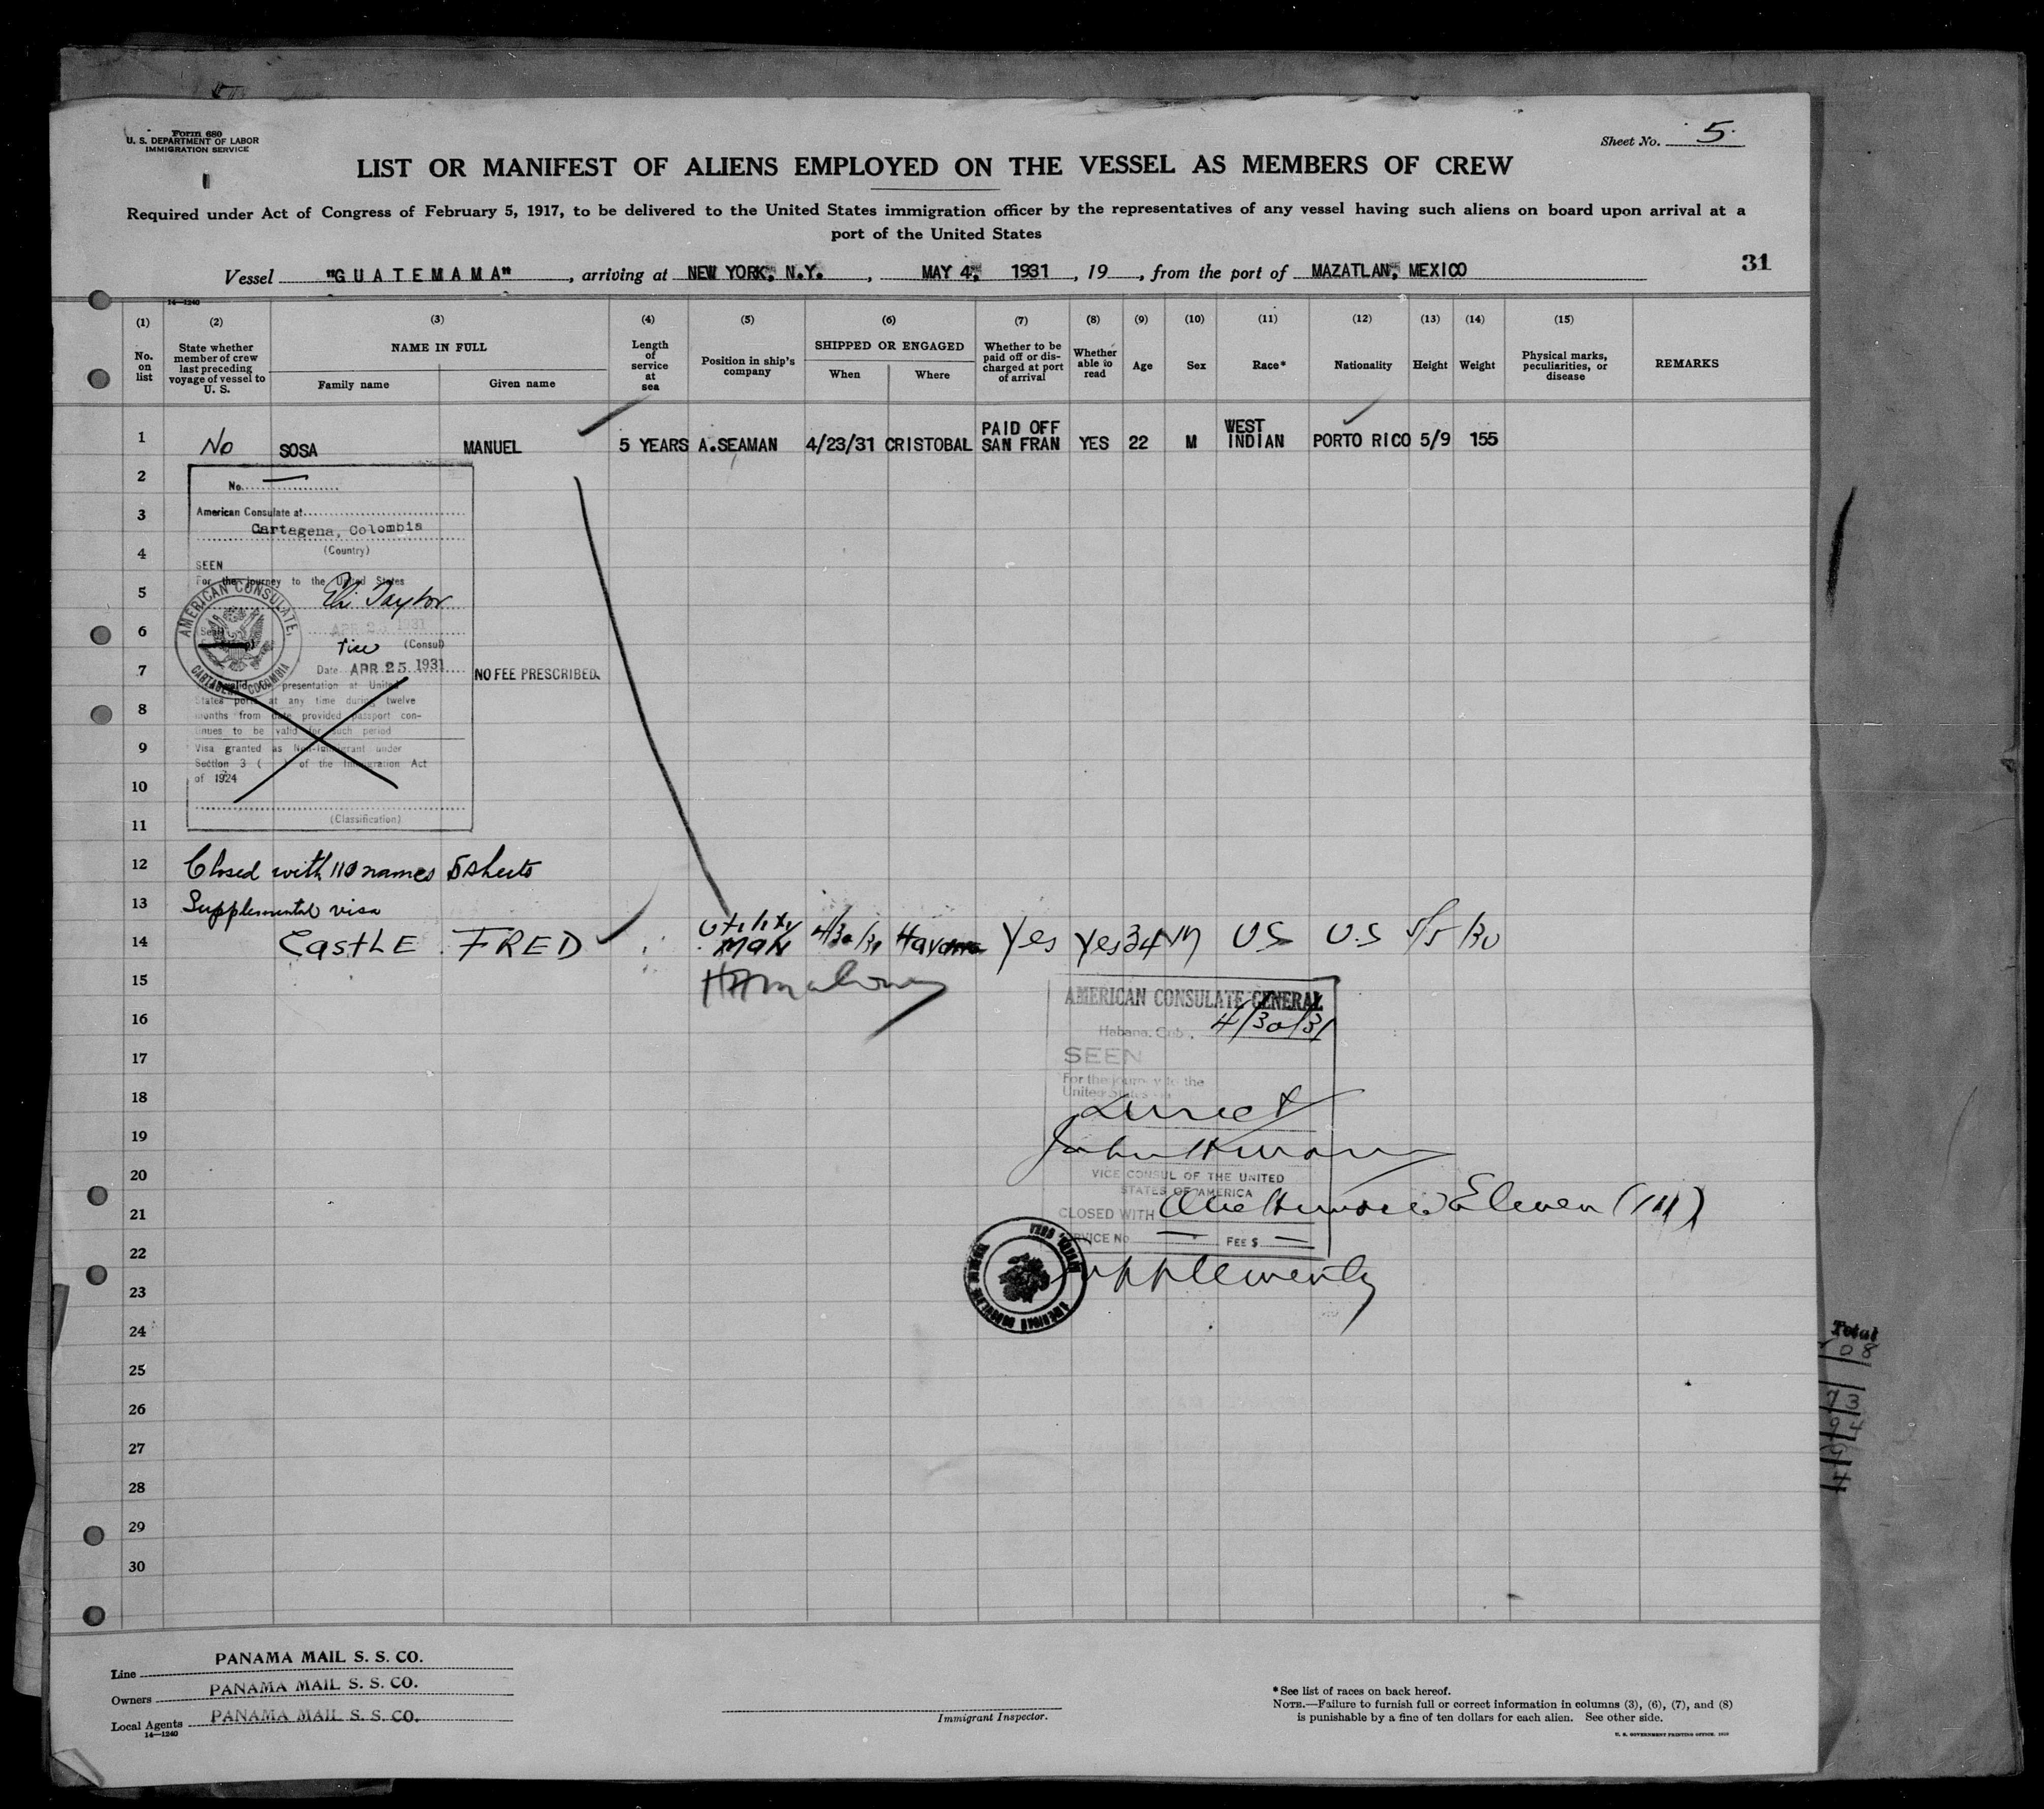 Form 680
U. S. DEPARTMENT OF LABOR
IMMIGRATION SERVICE
Sheet No. 5.
LIST OR MANIFEST OF ALIENS EMPLOYED ON THE VESSEL AS MEMBERS OF CREW
Required under Act of Congress of February 5, 1917, to be delivered to the United States immigration officer by the representatives of any vessel having such aliens on board upon arrival at a
port of the United States
Vessel "GUATEMAMA", arriving at NEW YORK, N.Y., MAY 4, 1931, 19, from the port of MAZATLAN, MEXICO
31
14—1240
(1) (2) (3) (4) (5) (6) (7) (8) (9) (10) (11) (12) (13) (14) (15)
No. on list
State whether member of crew last preceding voyage of vessel to U. S.
NAME IN FULL
Family name
Given name
Length of service at sea
Position in ship's company
SHIPPED OR ENGAGED
When
Where
Whether to be paid off or discharged at port of arrival
Whether able to read
Age
Sex
Race*
Nationality
Height
Weight
Physical marks, peculiarities, or disease
REMARKS
1 No SOSA MANUEL 5 YEARS A.SEAMAN 4/23/31 CRISTOBAL PAID OFF SAN FRAN YES 22 M WEST INDIAN PORTO RICO 5/9 155
2
No.
3
American Consulate at
Cartagena, Colombia
4
(Country)
SEEN
For the journey to the United States
5
AMERICAN CONSULATE,
CARTAGENA, COLOMBIA
Taylor
6
APR 2 1931
(Consul)
7
Date APR 25 1931
NO FEE PRESCRIBED.
presentation at United
8
States ports at any time during twelve
months from date provided passport con-
tinues to be valid for such period
9
Visa granted as Non-Immigrant under
Section 3 ( ) of the Immigration Act
10
of 1924
11
(Classification)
12 Closed with 110 names 5 sheets
13 Supplemental visa
14 CastLE FRED Utility MAN 4/30/31 Havana Yes Yes 34 M US U.S 5/5 130
15
AMERICAN CONSULATE GENERAL
16
Habana, Cuba, 4/30/31
17
SEEN
For the journey to the
United States
18
Direct
19
John
20
VICE CONSUL OF THE UNITED
STATES OF AMERICA
21
CLOSED WITH One Hundred Eleven (111)
SERVICE No FEE $
22
Supplementy
23
24
25
26
27
28
29
30
Total
Line PANAMA MAIL S. S. CO.
Owners PANAMA MAIL S. S. CO.
Local Agents PANAMA MAIL S. S. CO.
14—1240
Immigrant Inspector.
*See list of races on back hereof.
NOTE.—Failure to furnish full or correct information in columns (3), (6), (7), and (8)
is punishable by a fine of ten dollars for each alien. See other side.